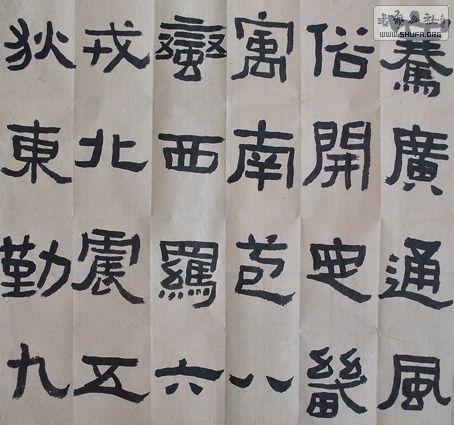 騫廣通風
俗開定畿
寓南苞八
蠻西羈六
戎北震五
狄東勤九
公社
WWW.SHUFA.ORG